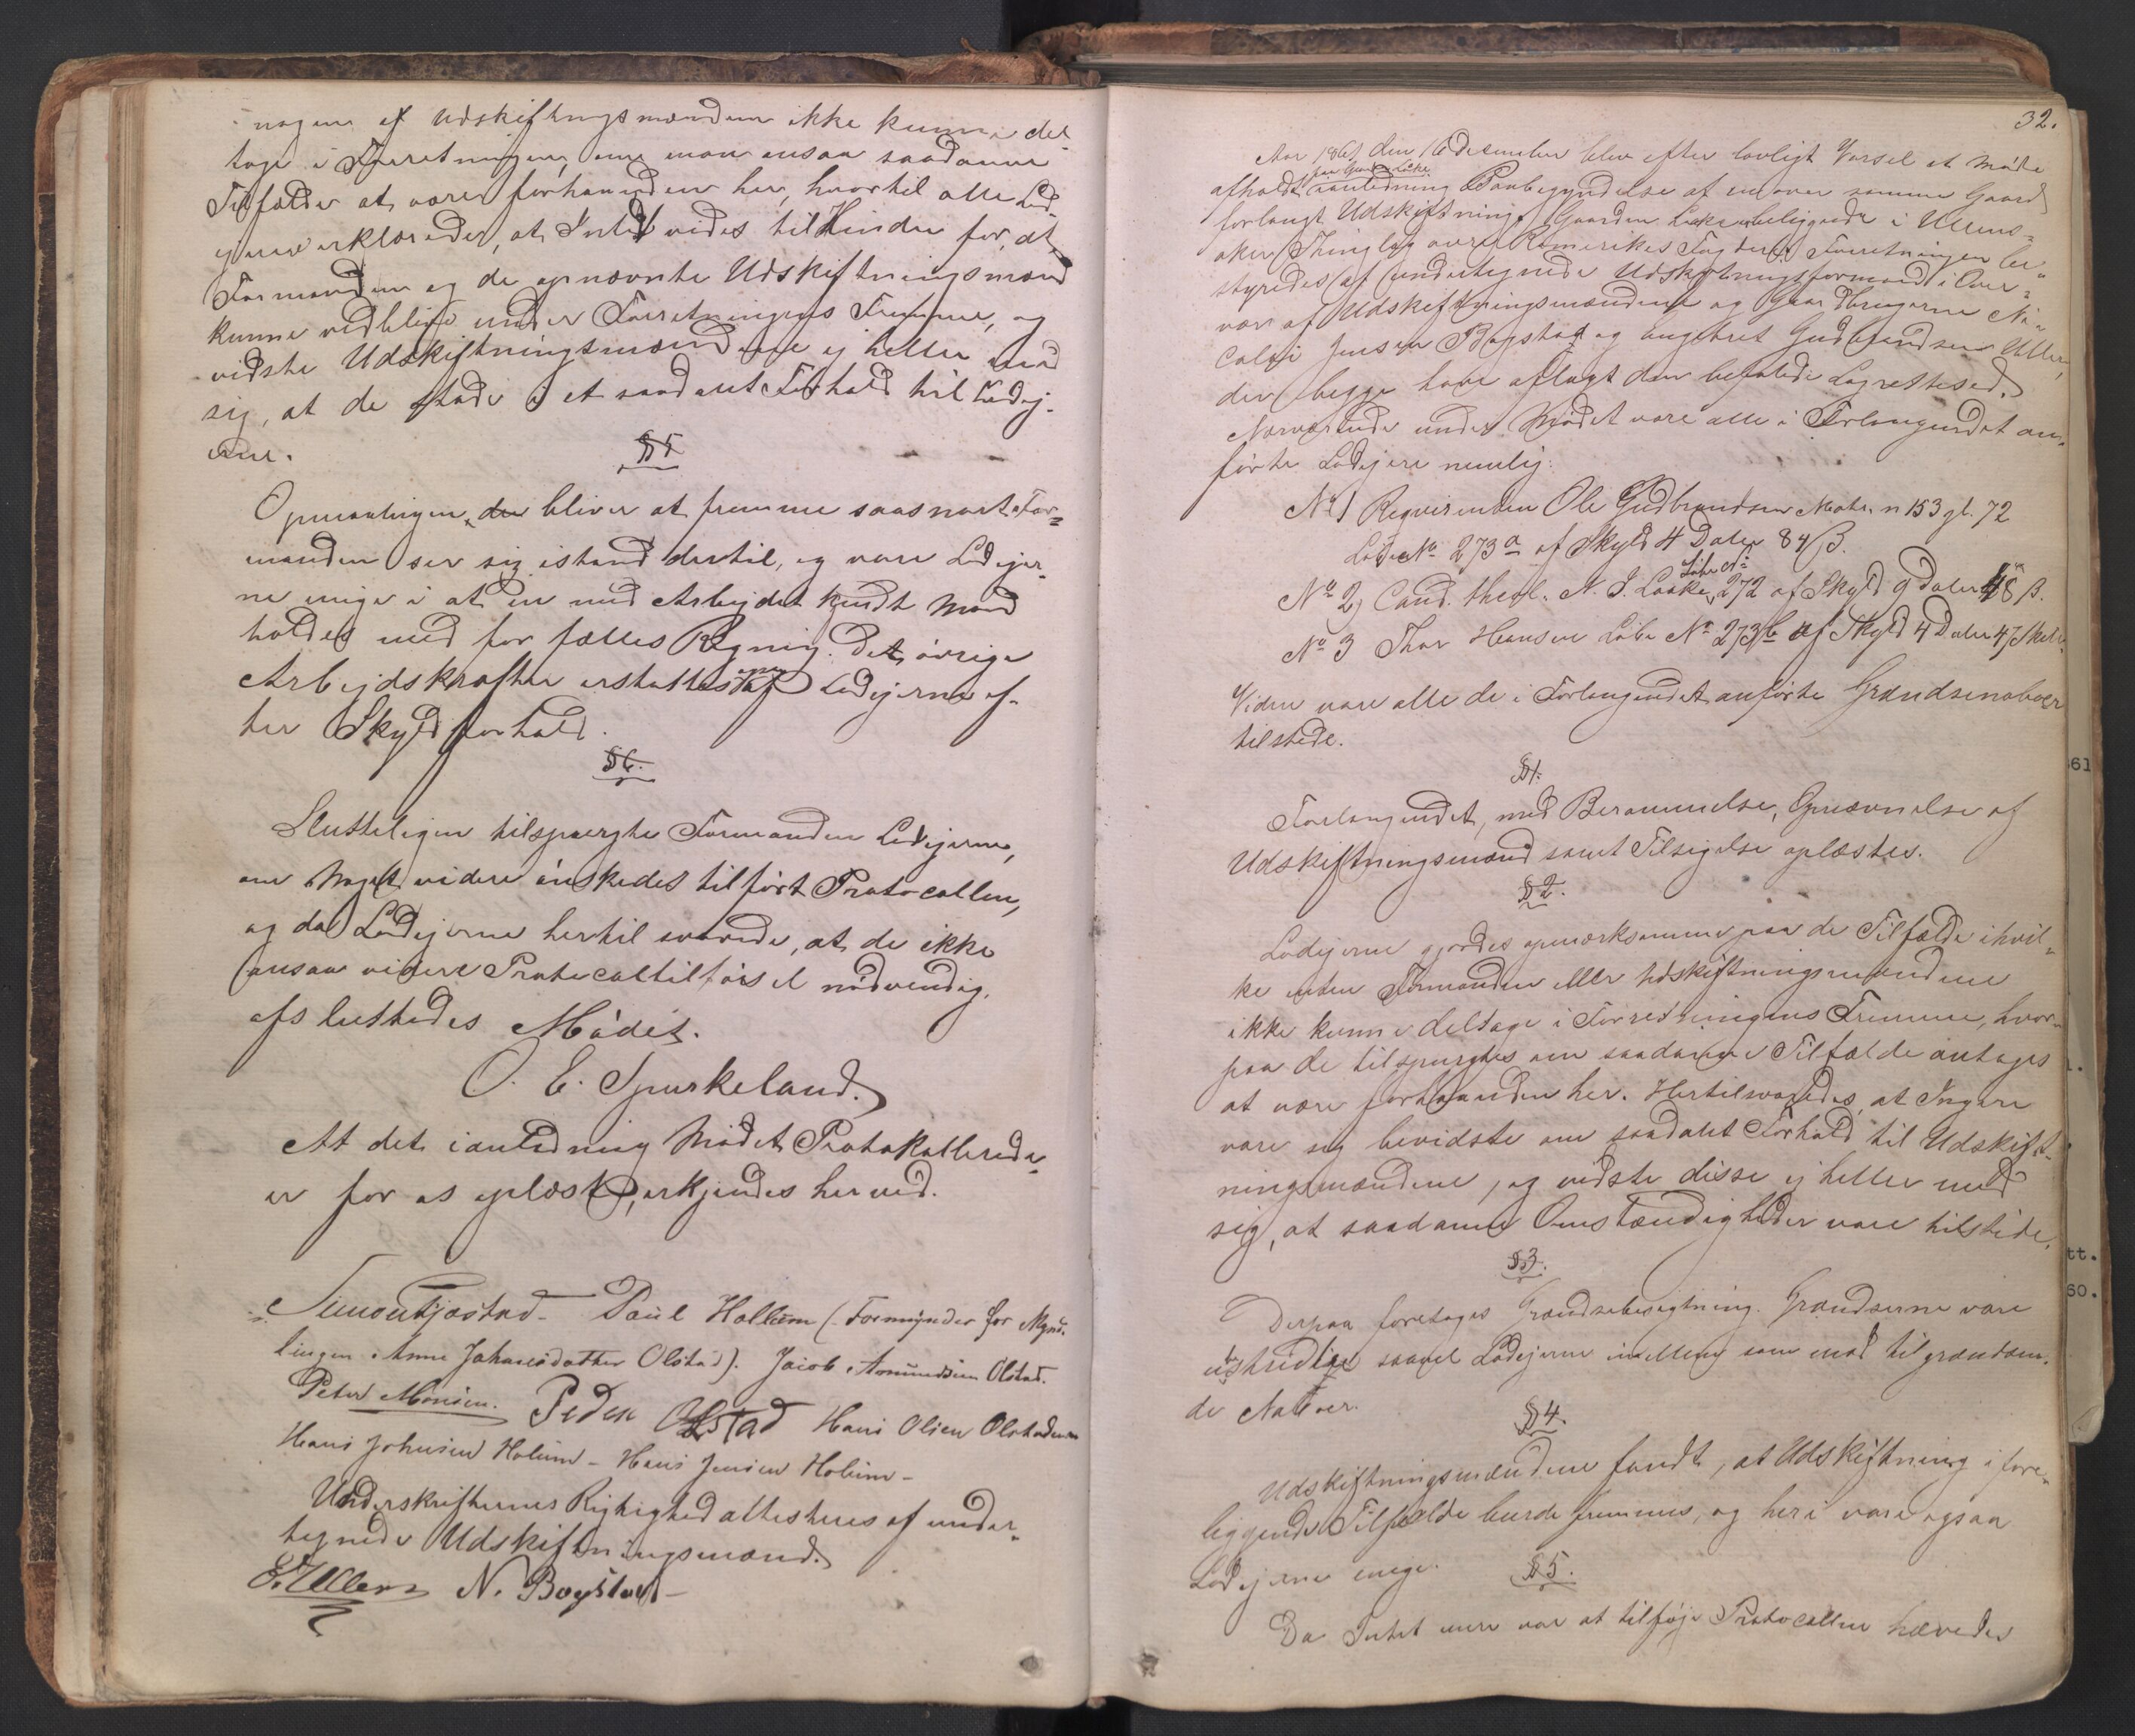 nogen af Udskiftningsmændene ikke kunne del-
tage i Forretningen, om man ansaa saadanne
Tilfælde at være forhaanden her, hvortil alle Lod-
ejerne erklærede, at Intet vides til Hinder for, at
Formanden og de opnævnte Udskiftningsmænd
kunne vedblive under Forretningens Fremme, og
vidste Udskiftningsmændene ej heller med
sig, at de stode i et saadant Forhold til Lodej-
erne.
§ 5
Opmaalingen bliver at fremme saasnart For-
manden ser sig istand dertil, og vare Lodejer-
ne enige i at en med Arbejdet kjendt Mand
holdes med for fælles Regning. Det øvrige
Arbejdskrafter erstattes af Lodejerne ef-
ter Skyldforhold.
§ 6.
Slutteligen tilspurgte Formanden Lodejerne,
om Noget videre ønskedes tilført Protocollen,
og da Lodejerne hertil svarede, at de ikke
ansaa videre Protocoltilførsel nødvendig,
afsluttedes Mødet.
O. E. Spurkeland.
At det i anledning Mødet Protokollerede
er for os oplæst, erkjendes herved.
Simon Kjøstad - Paul Hollum (Formynder for Mynd-
lingen Anne Johanesdatter Olstad). Jacob Amundsen Olstad.
Peter Monsen. Peder Olstad Hans Olsen Olstad
Hans Johnsen Holum - Hans Jensen Holum -
Underskrifternes Rigtighed attesteres af under-
tegnede Udskiftningsmænd.
E. Ullern N. Bogstad -
32.
Aar 1861 den 16 December blev efter lovligt Varsel et Møde
paa Gaarden Løke
afholdt i anledning Paabegyndelse af en over samme Gaard
forlangt Udskiftning. Gaarden Løke er beliggende i Ullens-
aker Thinglag øvre Romerikes Fogderi. Forretningen be-
styredes af undertegnede Udskiftningsformand i Over-
vær af Udskiftningsmændene og Gaardbrugerne Ni-
colai Jensen Bogstad og Engebret Gudbrandsen Ullern,
der begge have aflagt den befalede Lagrettesed.
Nærværende under Mødet vare alle i Forlangendet an-
førte Lodejere nemlig:
No 1 Requirenten Ole Gudbrandsen Matr. n 153 gl. 72
Løbe No 273a af Skyld 4 Daler 84 β.
Løbe No
No 2, Cand. theol. N. J. Laake, 272 af Skyld 9 Daler 48 β.
No 3 Thor Hansen Løbe No 273b af Skyld 4 Daler 47 Skill.
Videre vare alle de i Forlangendet anførte Grændsenaboer
tilstede.
§ 1.
Forlangendet, med Berammelse, Opnævnelse af
Udskiftningsmænd samt Tilsigelse oplæstes.
§ 2.
Lodejerne gjordes opmærksomme paa de Tilfælde i hvil-
ke enten Formanden eller Udskiftningsmændene
ikke kunne deltage i Forretningens Fremme, hvor-
paa de tilspurgtes om saadanne Tilfælde antages
at være forhaanden her. Hertil svaredes, at Ingen
vare sig bevidste om saadant Forhold til Udskift-
ningsmændene, og vidste disse ej heller med
sig, at saadanne Omstændigheder vare tilstede.
§ 3.
Derpaa foretoges Grændsebesigtning. Grændserne vare
ustridige saavel Lodejerne imellem som mod tilgrændsen-
de Naboer.
§ 4.
Udskiftningsmændene fandt, at Udskiftning i fore-
liggende Tilfælde burde fremmes, og heri vare ogsaa
Lodejerne enige.
§ 5.
Da Intet mere var at tilføje Protocollen hævedes
61
tt.
60.